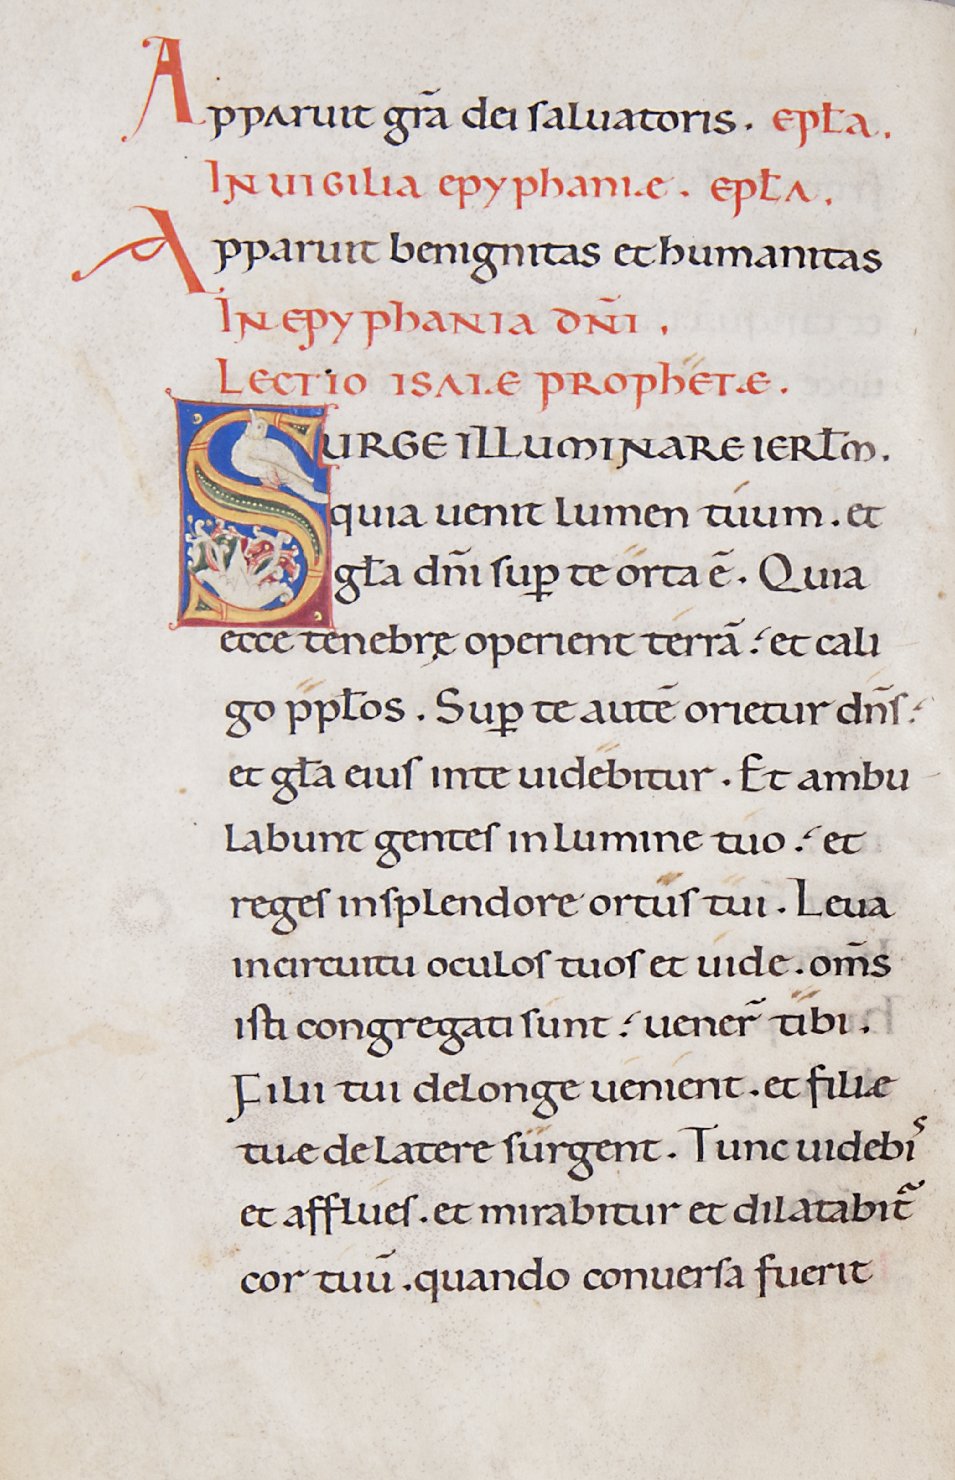 Apparuit gr̄a dei saluatoris. epł̄a.
IN UIGILIA epyphaniæ. epł̄ᴀ.
Apparuit benignitas et humanitas
IN epyphania dn̄i.
LECTIO ISAIÆ PROPHETÆ.
SURGE ILLUMINARE IERł̄m.
quia uenit lumen tuum. et
gł̄a dn̄i suꝑ te orta ē. Quia
ecce tenebrę operient terrā ⁏ et cali
go ppł̄os. Suꝑ te autē orietur dn̄s ⁏
et gł̄a eius inte uidebitur. Et ambu
labunt gentes in lumine tuo ⁏ et
reges insplendore ortus tui. Leua
incircuitu oculos tuos et uide. om̄s
isti congregati sunt ⁏ uener̄ tibi.
Filii tui delonge uenient. et filiæ
tuæ de latere surgent. Tunc uidebiˢ
et afflues. et mirabitur et dilatabit̄
cor tuū. quando conuersa fuerit